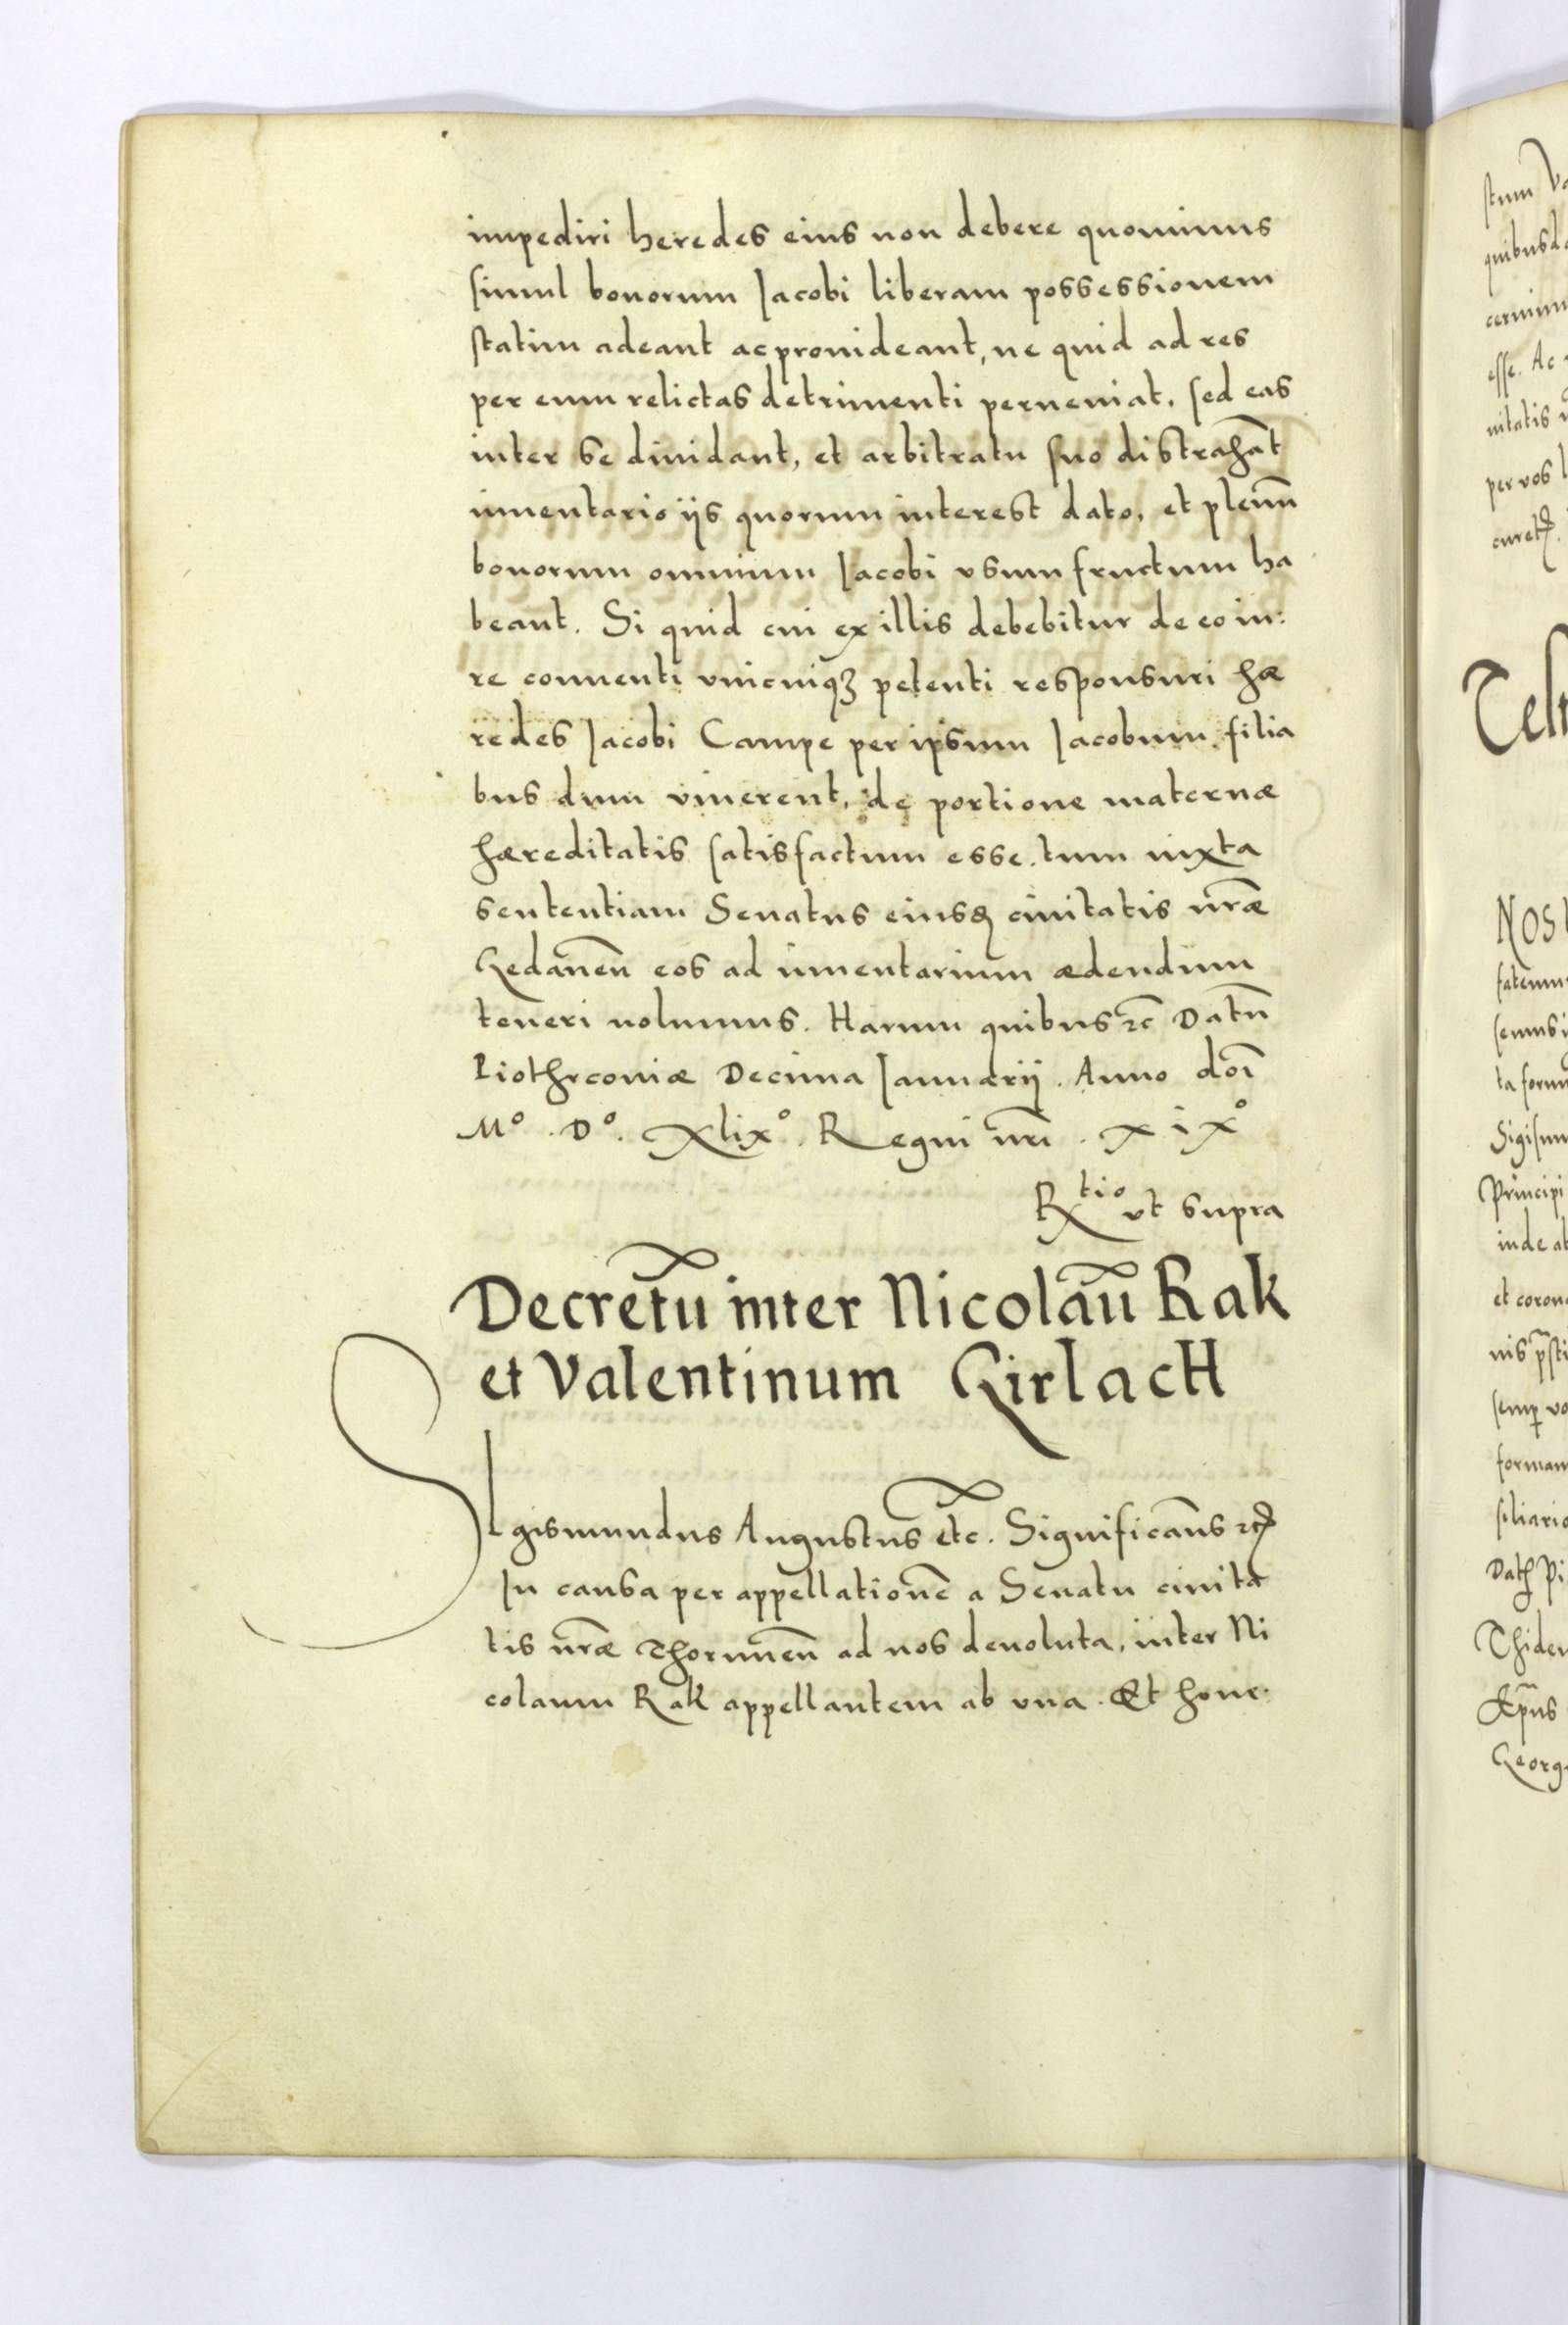 impediri heredes eius non debere quominus
simul bonorum Iacobi liberam possessionem
statim adeant ac prouideant, ne quid ad res
per eum relictas detrimenti perueniat. sed eas
inter se diuidant, et arbitratu suo distrahāt
inuentario ijs quorum interest dato, et plenū
bonorum omnium Iacobi vsumfructum ha
beant. Si quid cui ex illis debebitur de eo iu:
re conuenti vnicuiqꝫ petenti responsuri hæ
redes Iacobi Campe per ipsum Iacobum filia
bus dum viuerent, de portione maternæ
hæreditatis satisfactum esse. tum iuxta
sententiam Senatus eiusꝗ ciuitatis nr̃æ
Gedanen̄ eos ad inuentarium ædendum
teneri uolumus. Harum quibus ꝛc̃ Datū
Piothrconiæ Decima Ianuarij. Anno doī
Mº. Dº. Xlixº. Regni nrī. xixº
Rtio vt supra
Decretū inter Nicolaū Rak
et Valentinum GirlacH
SIgismundus Augustus etc. Significans ꝛc
In causa per appellationē a Senatu ciuita
tis nr̃æ Thorunen̄ ad nos deuoluta, inter Ni
colaum Rak appellantem ab vna. Et hone:
stum Va
quibusd
esse. Ac
uitatis
per vos
Nos
ta form
Principi
inde ab
et coron
semp̱ vo
forman
siliario
Georg